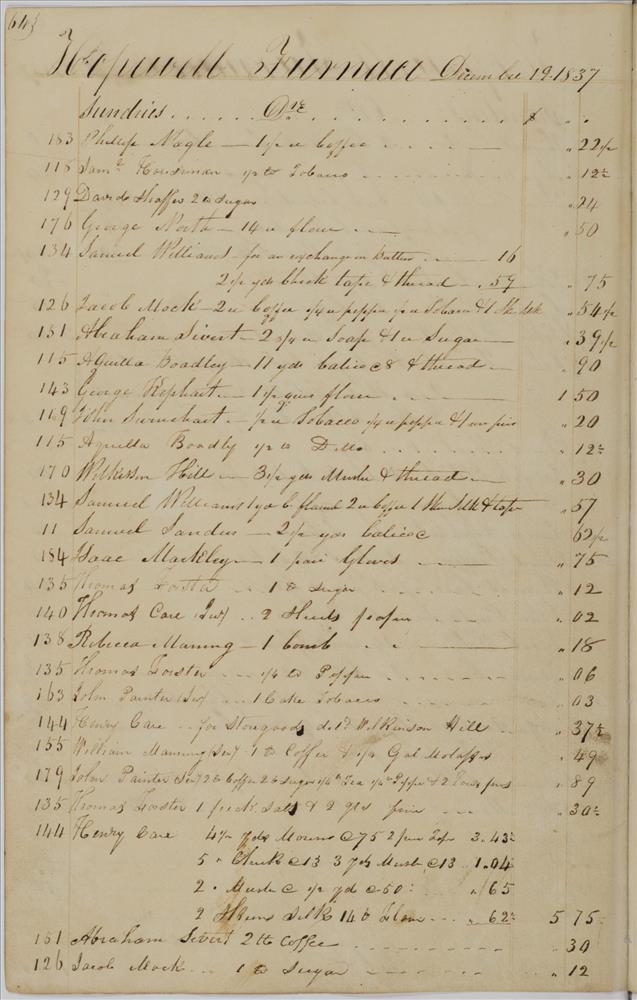 643
Hopewell Furnace December 19. 1837
Sundries . . . . . . Drs . . . . . . . . . . $ " "
183 Philip Nagle — 1½ u Coffee — — — " 22½
118 Saml Housman ½ lb Tobacco — — — " 12½
129 David Shaffer 2 u Sugar " 24
176 George North — 14 u flour — " 50
134 Samuel Williams — for an exchange in Butter — 16
2½ yds check tape & thread — . 59 " 75
126 Jacob Mock — 2 u Coffee ¼ u pepper ½ u Tobacco & 1 Skn Silk " 54½
151 Abraham Sivert — 2 ¾ u Soap & 1 u Sugar — " 39½
115 Aquilla Boadley — 11 yds Calico @ 8 & thread — " 90
143 George Kephart — 1½ qrs flour — 1 50
119 John Swinehart — ½ u Tobacco ¼ u pepper & 1 row pins " 20
115 Aquilla Boadly ½ lb Ditto . . . . . . " 12½
170 Wilkisson Hill — 3½ yds Muslin & thread — " 30
134 Samuel Williams 1 yd C. flannel 2 u Coffee 1 Skn Silk & tape " 57
11 Samuel Sanders — 2½ yds Calico @ 62½
184 Isaac Mackley — 1 pair Gloves — " 75
135 Thomas Forster . . 1 lb Sugar . . . " 12
140 Thomas Care (Jur) . . 2 Sheets paper — " 02
138 Rebecca Maning — 1 Comb . . — " 18
135 Thomas Forster . . . ¼ lb Pepper — — " 06
163 John Painter (Jur) . . . 1 Cake Tobacco — — " 03
144 Henry Care . . for Stonegoods deld Wilkinson Hill . . " 37½
155 William Manning (Sen) 1 lb Coffee & ½ Gal Molasses " 49
179 John Painter (Sen) 2 lb Coffee 2 lb Sugar ¼ lb Tea ¼ lb Pepper & 2 Rows pins " 89
135 Thomas Forster 1 peck Salt & 2 — — " 30½
144 Henry Care 4 7/12 yds @ 75 2 3.43½
5 " Check @ 13 3 yds Muslin @ 13 1.04
2 " Muslin @ ½ yd @ 50 " 65
2 Skeins Silk 14 lb Flour . . . " 62½ 5 75
151 Abraham Sivert 2 lb Coffee — — " 30
126 Jacob Mock . . . 1 lb Sugar — — " 12